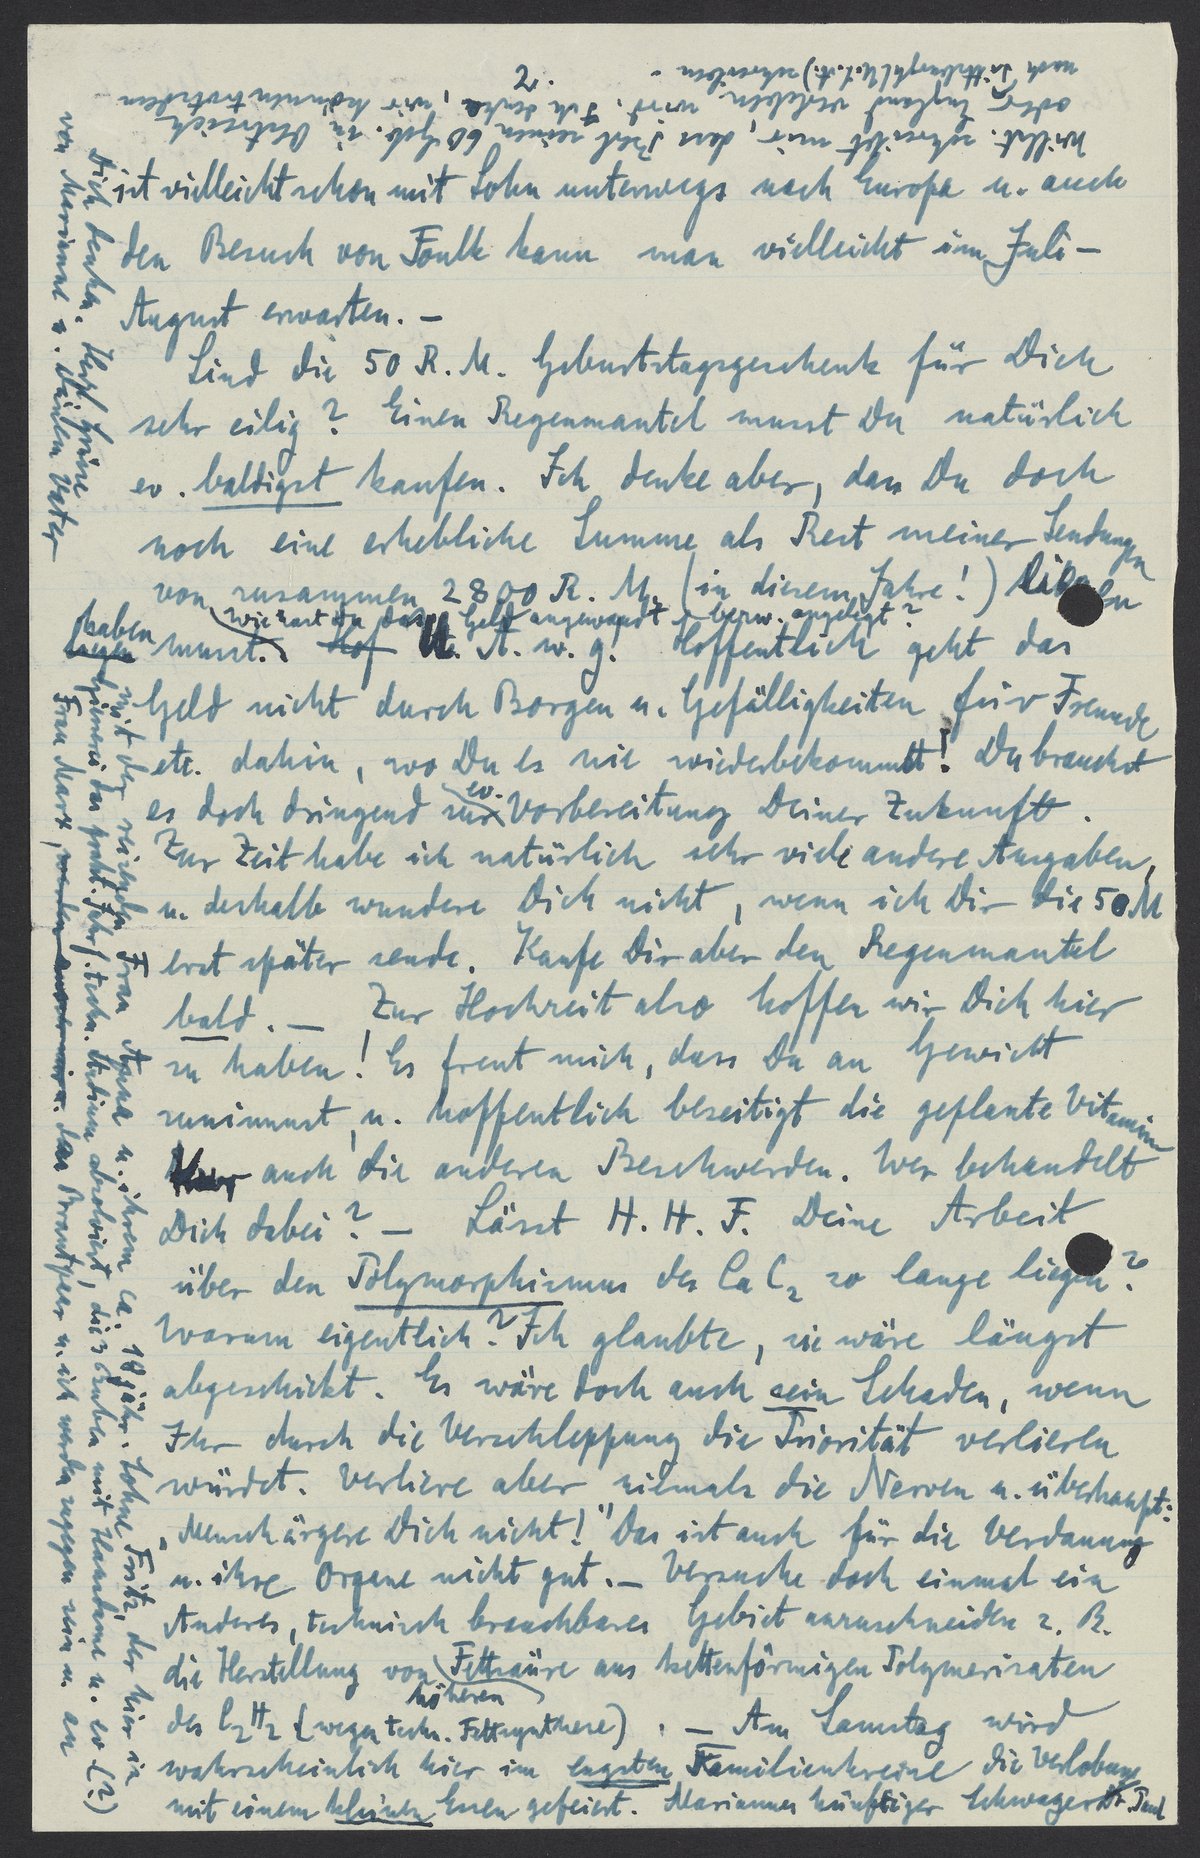 2.
ist vielleicht schon mit Sohn unterwegs nach Europa u. auch
den Besuch von Foulk kann man vielleicht im Juli –
August erwarten. –
Sind die 50 R. M. Geburtstagsgeschenk für Dich
sehr eilig? Einen Regenmantel musst Du natürlich
ev. baldigst kaufen. Ich denke aber, dass Du doch
noch eine erhebliche Summe als Rest meiner Sendungen
von zusammen 2800 R. M. (in diesem Jahre!)
wie hast Du das Geld angewandt, bezw. angelegt?
haben musst. U. A. w. g. Hoffentlich geht das
Geld nicht durch Borgen u. Gefälligkeiten für Freunde
etc. dahin, wo Du es nie wiederbekommst! Du brauchst
ev.
es doch dringend zur Vorbereitung Deiner Zukunft.
Zur Zeit habe ich natürlich sehr viele andere Ausgaben,
u. deshalb wundere Dich nicht, wenn ich Dir die 50 M
erst später sende. Kaufe Dir aber den Regenmantel
bald. – Zur Hochzeit also hoffen wir Dich hier
zu haben! Es freut mich, dass Du an Gewicht
zunimmst, u. hoffentlich beseitigt die geplante Vitamin
Kur auch die anderen Beschwerden. Wer behandelt
Dich dabei? – Lässt H. H. F. Deine Arbeit
über den Polymorphismus des CaC₂ so lange liegen?
Warum eigentlich? Ich glaubte, sie wäre längst
abgeschickt. Es wäre doch auch sein Schaden, wenn
Ihr durch die Verschleppung die Priorität verlieren
würdet. Verliere aber niemals die Nerven u. überhaupt:
„Mensch ärgere Dich nicht!" Das ist auch für die Verdauung
u. ihre Organe nicht gut. – Versuche doch einmal ein
Anderes, technisch brauchbares Gebiet anzuschneiden z. B.
die Herstellung von Fettsäure aus kettenförmigen Polymerisaten
höheren
des C₂H₂ (wegen techn. Fettsynthese). – Am Samstag wird
wahrscheinlich hier im engsten Familienkreise die Verlobung
mit einem kleinen Essen gefeiert. Mariannes künftiger Schwager Dr. Paul
mit der reizenden Frau Anna u. ihrem ca. 18jähr. Sohne Fritz, der hier in
das prakt. Jahr f. techn. Studium absolviert, die 3 Buben mit Hausdame u. ev (?)
Frau Marx, das Brautpaar u. ich werden zugegen sein u. an
Dich denken. Herzl. Grüsse
von Marianne u. Deinem Vater
Willst. schreibt mir, dass Pohl seinen 60 Geb. in Österreich
oder England verleben wird. Ich denke, wir können trotzdem
nach Pittsburgh (U.S.A.) schreiben –